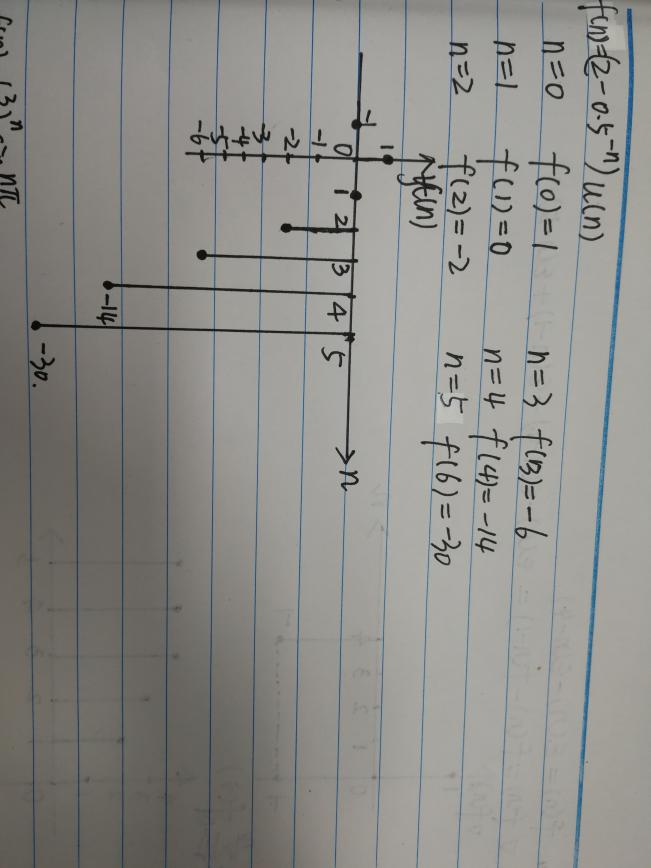 f(n)=(2-0.5^-n)u(n)
n=0 f(0)=1 n=3 f(3)=-6
n=1 f(1)=0 n=4 f(4)=-14
n=2 f(2)=-2 n=5 f(6)=-30
f(n)
1
-1 0 1 2 3 4 5 n
-1
-2
-3
-4
-5
-6
-14
-30.